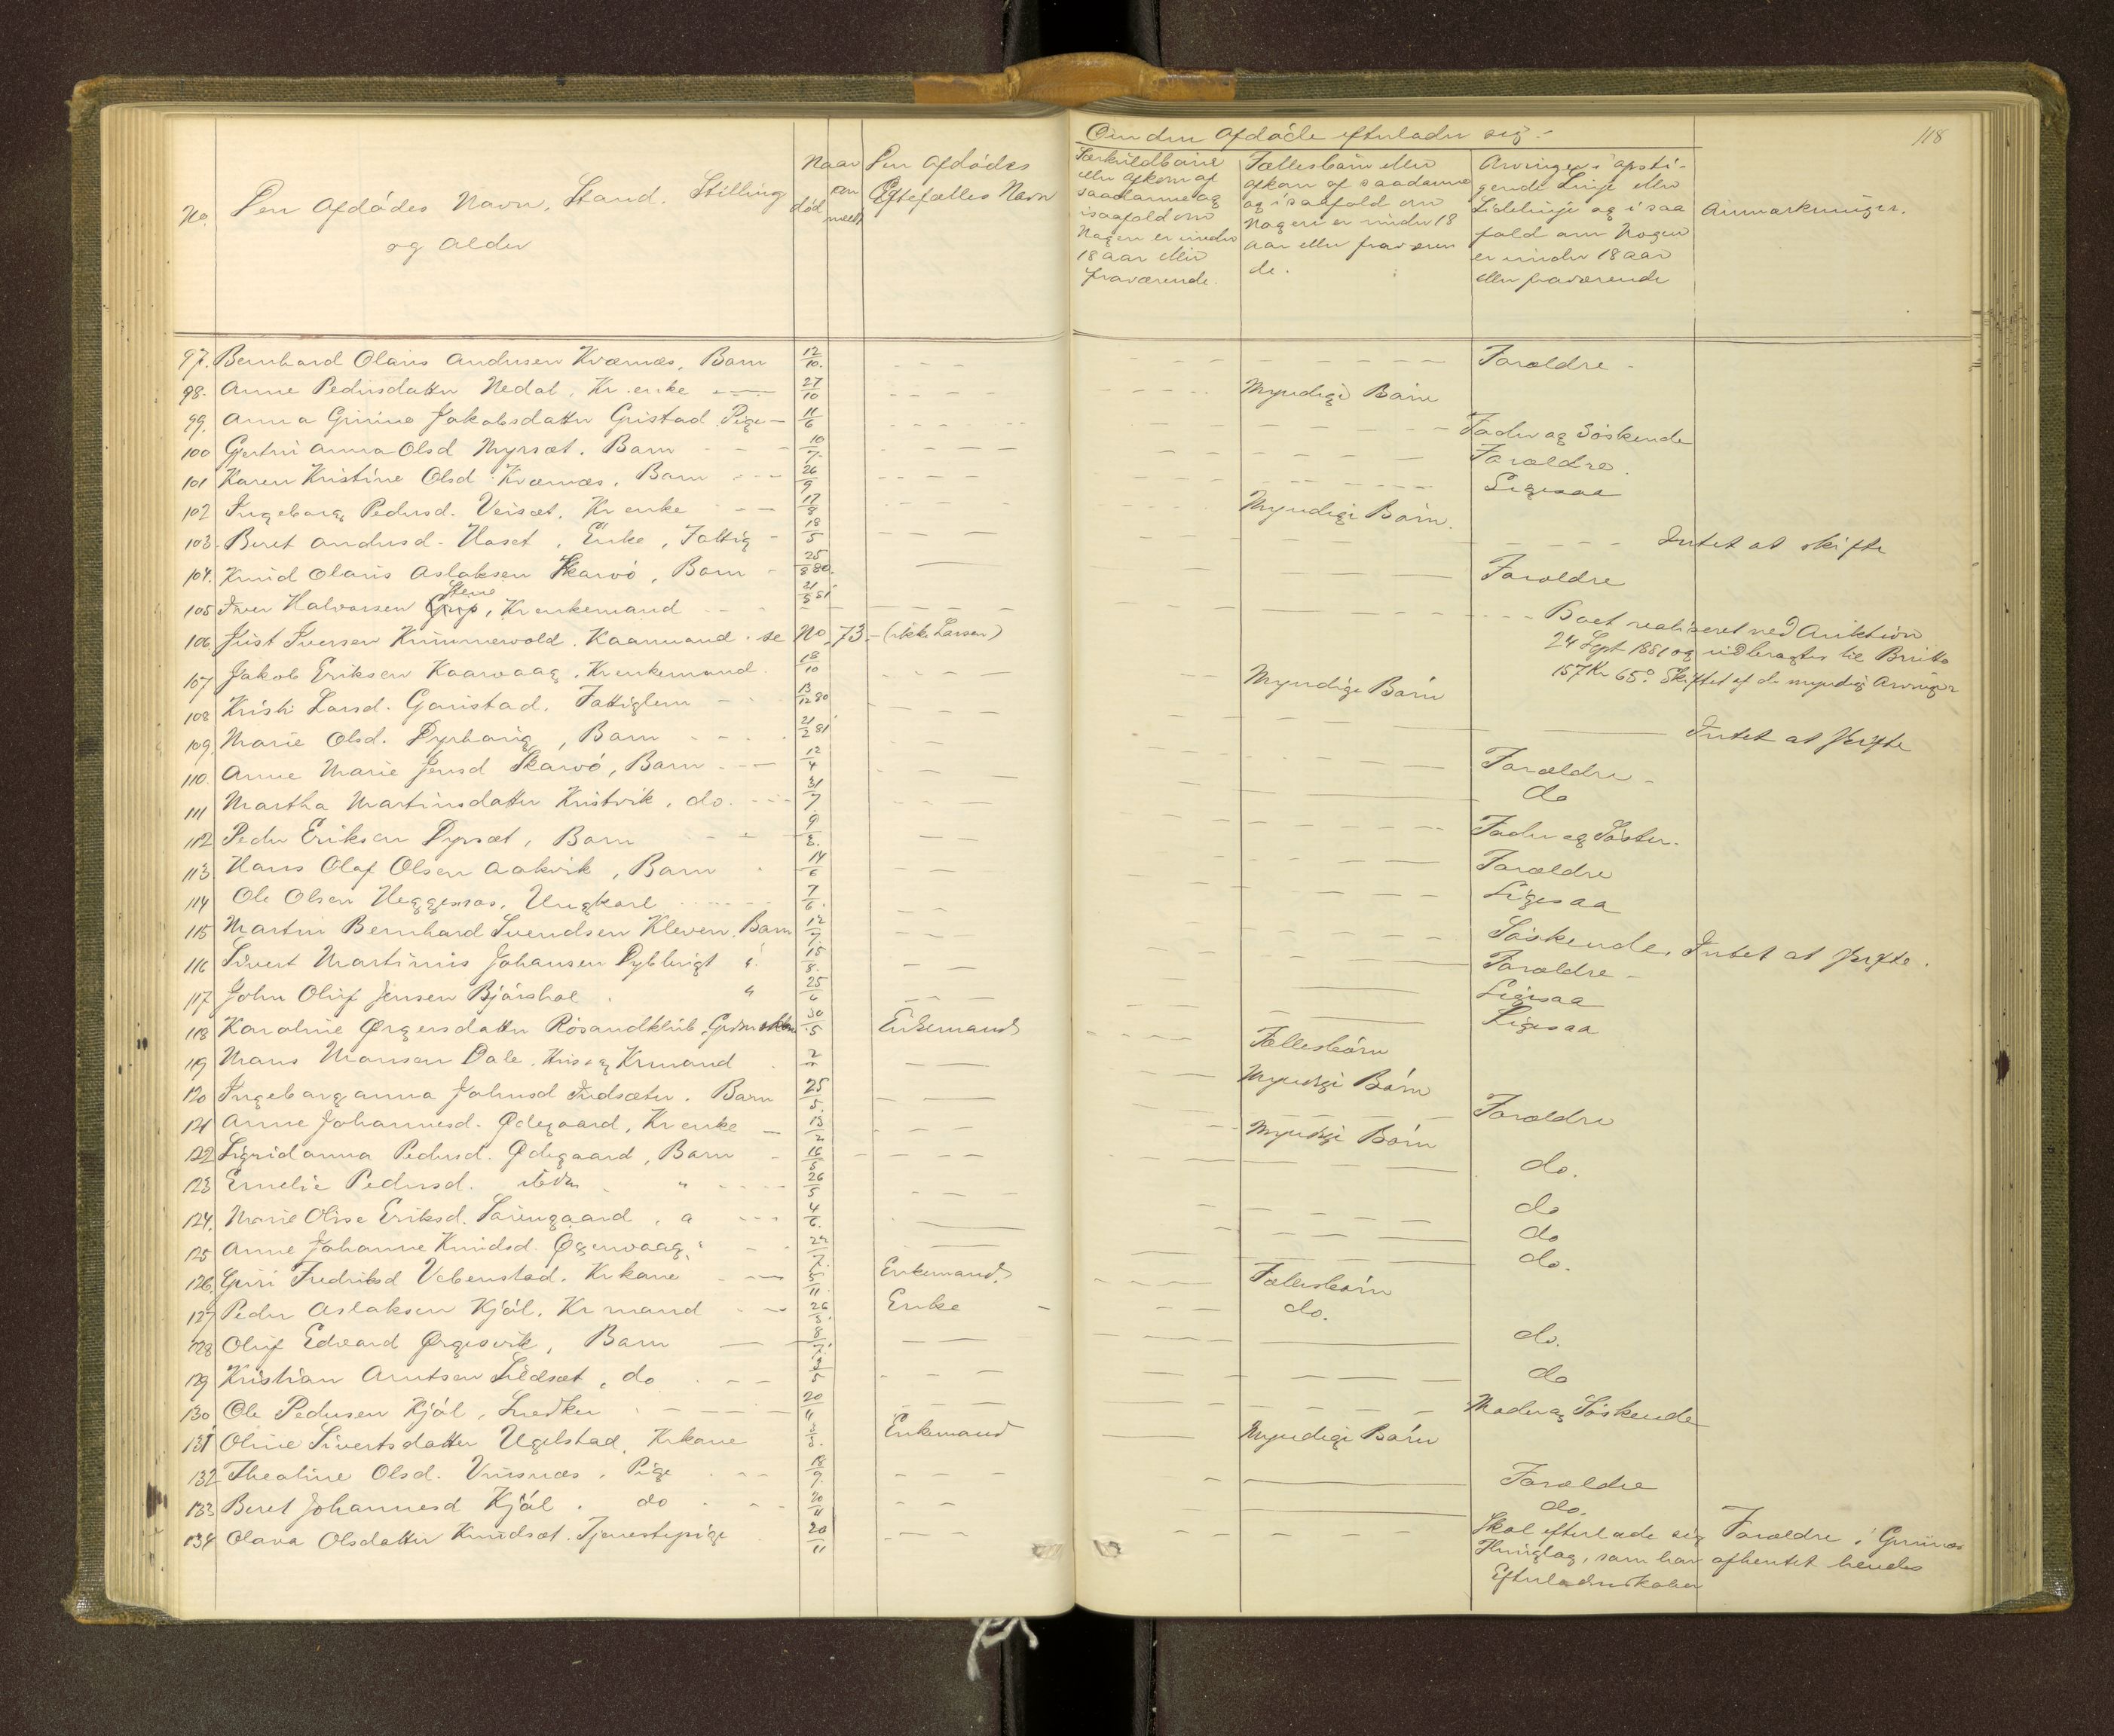 118
No.
Den Afdødes Navn, Stand, Stilling
og Alder
Naar
død
an
meldt
Den Afdødes
Eftefælles Navn
Om den Afdøde efterlader sig:
Særkuldbørn
eller Afkom af
saadanne og
isaafald om
Nogen er under
18 aar eller
fraværende.
Fællesbørn eller
afkom af saadanne
og isaafald om
Nogen er under 18
aar eller fraværen
de.
Arvinger i opsti-
gende Linje eller
Sidelinje og i saa
fald om Nogen
er under 18 aar
eller fraværende
Anmærkninger.
97. Bernhard Olaus Andersen Kværnæs, Barn 12/10. Forældre
98. Anne Pedersdatter Nedal, Kr. enke 27/10 Myndige Børn
99. Anna Gurine Jakobsdatter Gustad Pige 11/6 Fader og Søskende
100 Gjertru Anna Olsd Myrsæt. Barn 10/7. Forældre.
101 Karen Kristine Olsd Kværnæs, Barn 26/9 Ligesaa
102 Ingeborg Pedersd. Veisæt, Kr enke 17/8 Myndige Børn.
103. Beret Andersd. Haset, Enke, Fattig 18/5 Intet at skifte
104. Knud Olaus Aslaksen Skarvø, Barn 25/8 80. Forældre
105 Iver Halvorsen Stene, Kr enkemand 21/5 81 Boet realiseret ved Auktion
24 Sept 1881 og udbragtes til Brutto
157 Kr 65 ø. Skiftet af de myndige Arvinger
106. Just Iversen Kummervold. Kaarmand. se No. 73. (ikke Larsen)
107 Jakob Eriksen Kaarvaag, Kr enkemand. 18/10 Myndige Børn
108 Kristi Larsd. Garistad. Fattiglem 13/12 80 Intet at skifte
109. Marie Olsd. Dyrhaug, Barn 21/2 81 Forældre
110. Anne Marie Jensd Skarvø, Barn 12/4 do
111 Martha Martinsdatter Kristvik, do. 31/7 Fader og Søster.
112 Peder Eriksen Dyrsæt, Barn 9/8. Forældre
113 Hans Olaf Olsen Aakvik, Barn 14/6 Ligesaa
114 Ole Olsen Heggenæs. Ungkarl 7/6. Søskende, Intet at skifte.
115 Martin Bernhard Svendsen Kleven. Barn 12/7. Forældre
116 Sivert Martinus Johansen " 15/8. Ligesaa
117 John Oluf Jensen " 25/6 Ligesaa
118 Karoline Ørgersdatter 30/5 Enkemand Fællesbørn
119 Hans Hansen Dale. Hus og Krmand 2/7 Myndige Børn
120 Ingeborganna Johnsd Indsæter. Barn 25/5. Forældre
121 Anne Johannesd. Ødegaard, Kr enke 13/2 Myndige Børn
122 Sigridanna Pedersd. Ødegaard, Barn 16/5 do.
123 Emelie Pedersd. ibidm " 26/5 do
124. Marie Olise Eriksd. , " 4/6. do
125 Anne Johanne Knudsd. Øgenvaag. " 22/7. do.
126. Guri Fredriksd Vebenstad. Kr kone 5/11. Enkemand. Fællesbørn
127 Peder Aslaksen Kjøl. Kr mand 26/5. Enke do.
128 Oluf Edvard Ørgesvik, Barn 8/7. do.
129 Kristian Arntsen Lidsæt, do 3/5 do
130 Ole Pedersen Kjøl, Snedker 20/11 Moder og Søskende
131 Oline Sivertsdatter Ugelstad, Krkone Enkemand Myndige Børn
132 Theoline Olsd. , Pige 18/9. Forældre
133 Beret Johannesd Kjøl, do 20/11 do.
134 Olava Olsdatter Knudsæt. Tjenestepige 20/11 Skal efterlade sig Forældre i
Thinglag, som har afhentet hendes
Efterladenskaber